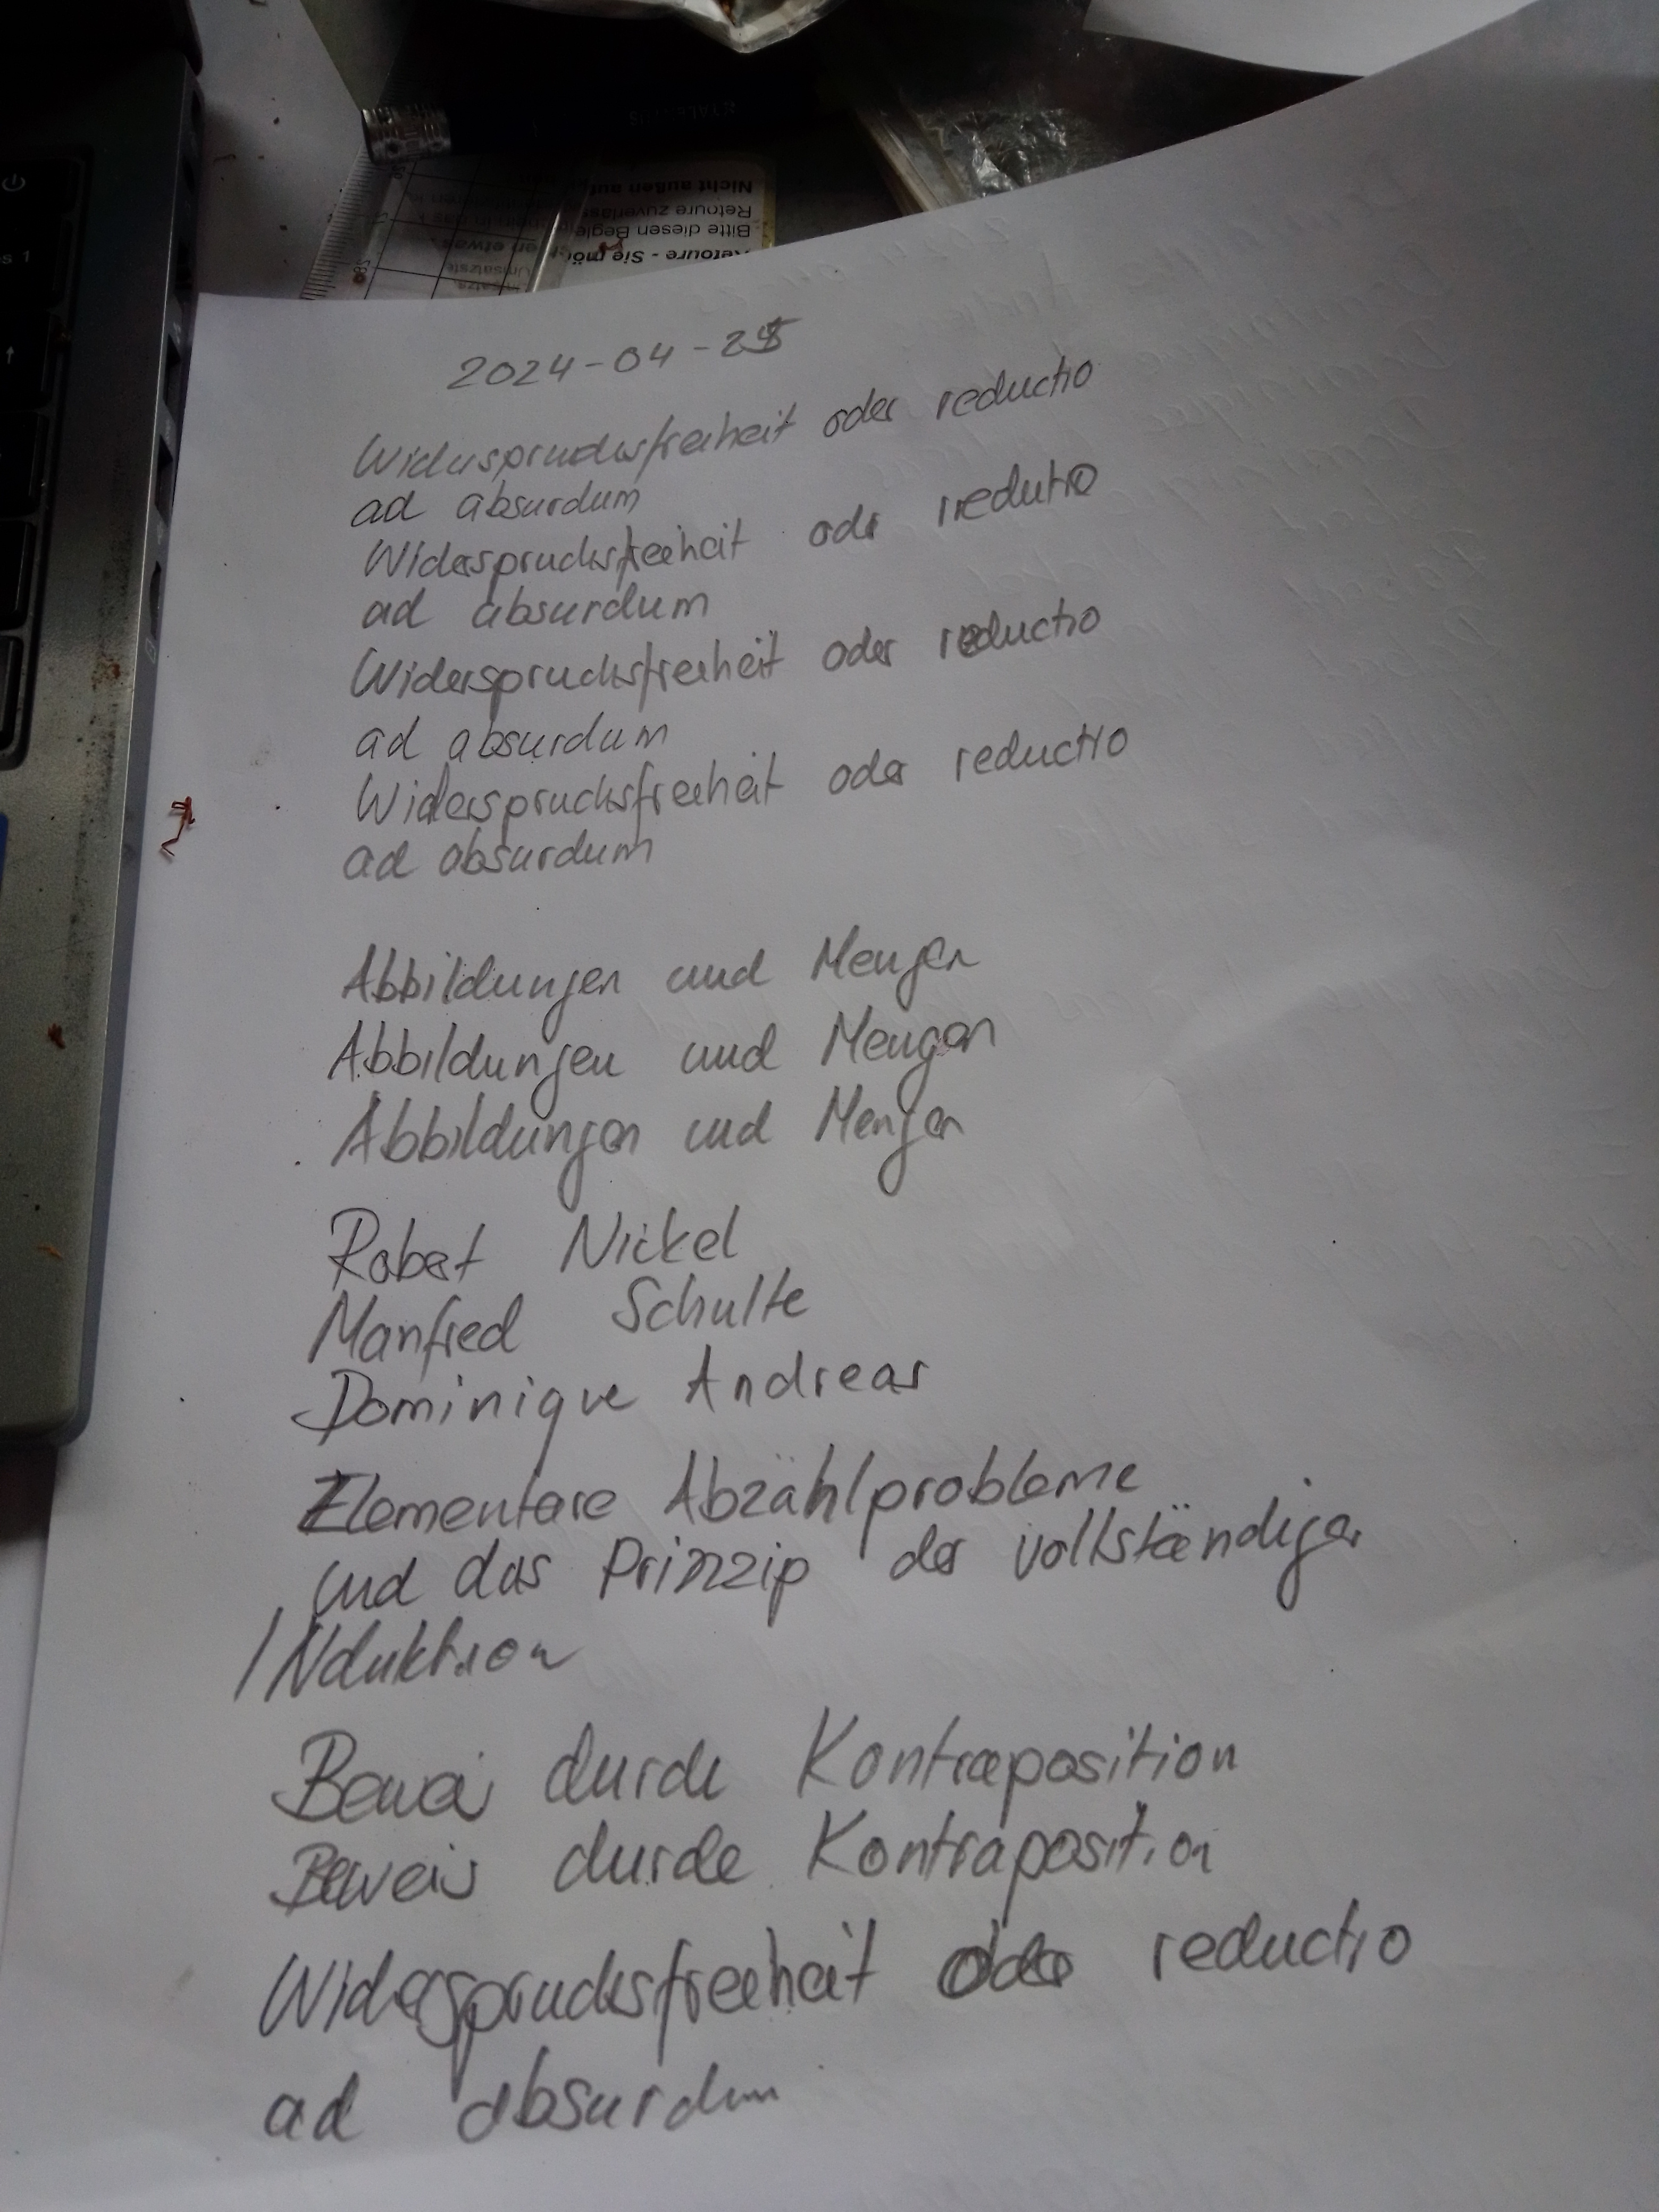 STAEDTLER
Nicht außen auf
Retoure zuverläs
Bitte diesen Beglei
Retoure - Sie möch en etwas
Umsatzste
s 1
2024-04-25
Widerspruchsfreiheit oder reductio
ad absurdum
Widerspruchsfreiheit oder redutio
ad absurdum
Widerspruchsfreiheit oder reductio
ad absurdum
Widerspruchsfreiheit oder reductio
ad absurdum
Abbildungen und Mengen
Abbildungen und Mengen
Abbildungen und Mengen
Robert Nickel
Manfred Schulte
Dominique Andreas
Elementare Abzählprobleme
und das Prinzip der vollständigen
INduktion
Beweis durch Kontraposition
Beweis durch Kontraposition
Widerspruchsfreiheit oder reductio
ad absurdum